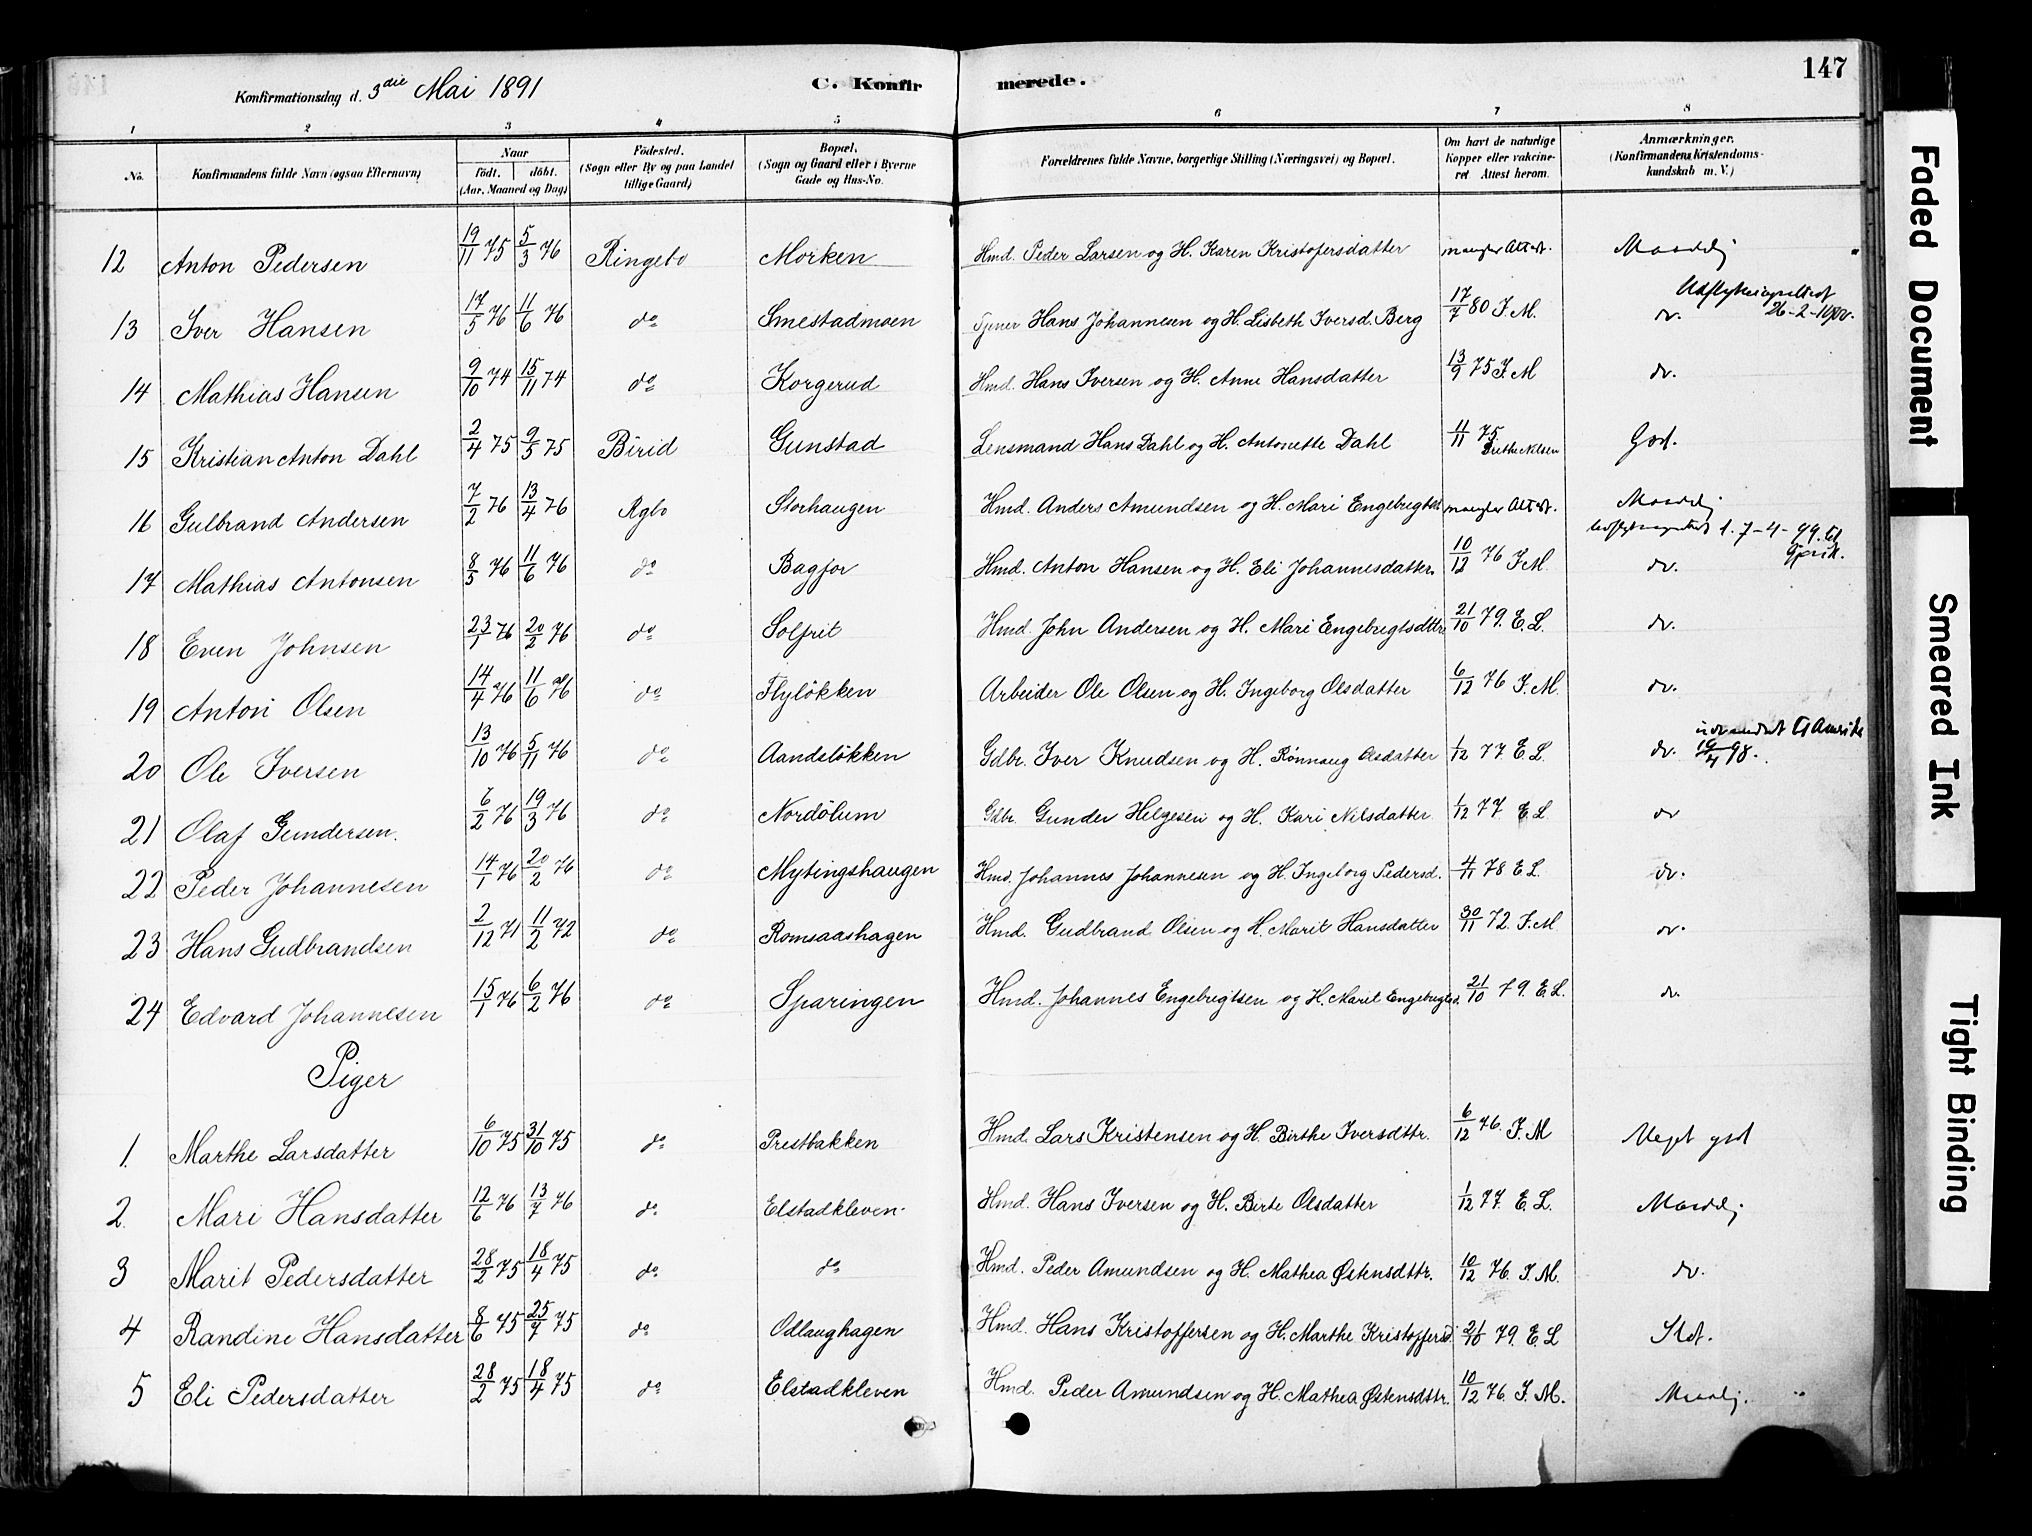 147
Konfirmationsdag d. 3die Mai 1891 C. Konfirmerede.
1 2 3 4 5 6 7 8
No. Konfirmandens fulde Navn (ogsaa Efternavn) Naar født. døbt. (Aar, Maaned og Dag) Fødested. (Sogn eller By og paa Landet tillige Gaard) Bopæl. (Sogn og Gaard eller i Byerne Gade og Hus-No. Forældrenes fulde Navne, borgerlige Stilling (Næringsvei) og Bopæl. Om havt de naturlige Kopper eller vakcineret Attest herom. Anmærkninger. (Konfirmandens Kristendomskundskab m. V.)
12 Anton Pedersen 19/11 75 5/3 76 Ringebo Morken Hmd. Peder Larsen og H. Karen Kristofersdatter mangler Attest. Maadelig
13 Iver Hansen 17/5 76 11/6 76 do Smestadmoen Tjener Hans Johannesen og H. Lisbeth Iversd. Berg 17/7 80 J. M. do. Udflytningsattest 26-2-
14 Mathias Hansen 9/10 74 15/11 74 do Korgerud Hmd. Hans Iversen og H. Anne Hansdatter 13/9 75 J. M do.
15 Kristian Anton Dahl 2/4 75 9/5 75 Birid Gunstad Lensmand Hans Dahl og H. Antonette Dahl 11/11 75 Grethe Nilsen God.
16 Gulbrand Andersen 7/2 76 13/4 76 Rgbo Storhaugen Hmd. Anders Amundsen og H. Mari Engebregtsd. mangler Attest. Maadelig
Udflytningsattest d. 7-4-99. til Gjøvik.
17 Mathias Antonsen 8/5 76 11/6 76 do Bagjor Hmd. Anton Hansen og H. Eli Johannesdatter. 10/12 76 J. M. do.
18 Even Johnsen 23/1 76 20/2 76 do Solfrit Hmd. John Andersen og H. Mari Engebregtsdttr. 21/10 79. E. L. do.
19 Anton Olsen 14/4 76 11/6 76 do Flyløkken Arbeider Ole Olsen og H. Ingeborg Olsdatter 6/12 76 J. M. do.
20 Ole Iversen 13/10 76 5/11 76 do Aandsløkken Gdbr. Iver Knudsen og H. Rønnaug Olsdatter 1/12 77 E. L. do. udvandret til Amerika 19/4 98.
21 Olaf Gundersen. 6/2 76 19/3 76 do Nordølum Gdbr. Gunder Helgesen og H. Kari Nilsdatter 1/12 77 E L do
22 Peder Johannesen 14/1 76 20/2 76 do Mytingshaugen Hmd. Johannes Johannesen og H. Ingeborg Pedersd. 4/11 78 E L. do.
23 Hans Gudbrandsen 2/12 71 11/2 72 do Romsaashagen Hmd. Gudbrand Olsen og H. Marit Hansdatter 30/11 72. J. M do.
24 Edvard Johannesen 15/1 76 6/2 76 do Sparingen Hmd. Johannes Engebregtsen og H. Marit Engebregtsd. 21/10 79. E. L. do.
Piger
1. Marthe Larsdatter 6/10 75 31/10 75 do Prestbakken Hmd. Lars Kristensen og H. Birthe Iversdttr. 6/12 76. J. M Meget god
2. Mari Hansdatter 12/6 76 13/7 76 do. Elstadkleven. Hmd. Hans Iversen og H. Birte Olsdatter 1/12 77. E. L. Maadelig.
3 Marit Pedersdatter 28/2 75 18/4 75 do. do. Hmd. Peder Amundsen og H. Mathea Østensdttr. 10/12 76. J. M. do.
4 Randine Hansdatter 8/6 75 25/7 75 do Odlaughagen Hmd. Hans Kristoffersen og H. Marthe Kristoffersd. 21/10 79. E. L Slet.
5 Eli Pedersdatter 28/2 75 18/4 75 do. Elstadkleven Hmd. Peder Amundsen og H. Mathea Østensdttr. 10/12 76. J. M. Maadelig.
Faded Document
Smeared Ink
Tight Binding